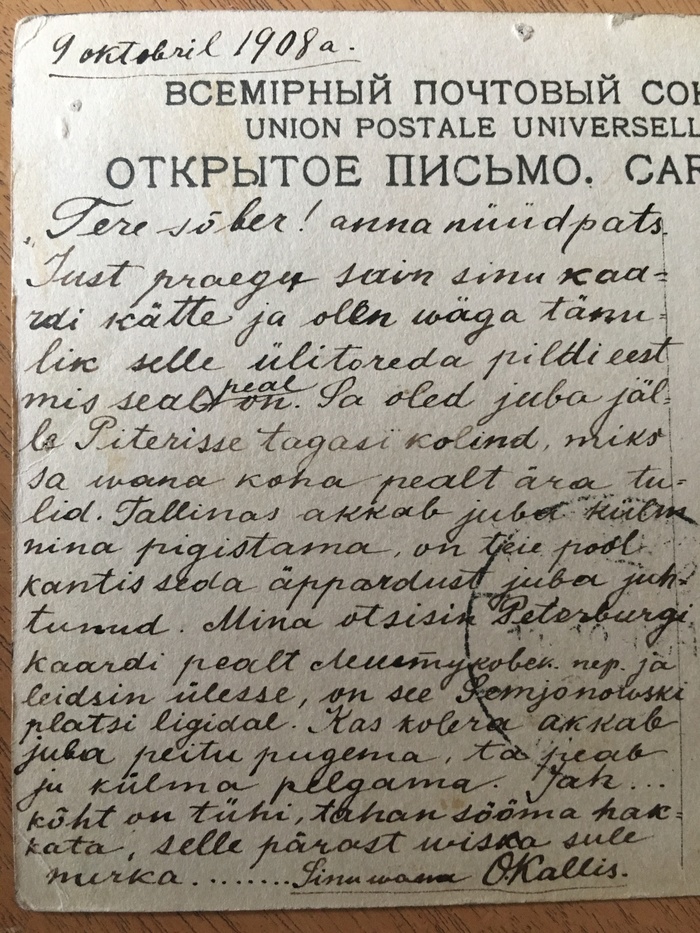 9 oktobril 1908 a.
ВСЕМІРНЫЙ ПОЧТОВЫЙ СОЮ
UNION POSTALE UNIVERSELL
ОТКРЫТОЕ ПИСЬМО. CAR
Tere sõber! anna nüüd pats.
Just praegu sain sinu kaa-
rdi kätte ja olen wäga tänu-
lik selle ülitoreda pildi eest
mis seal peal on. Sa oled juba jäl-
le Piterisse tagasi kolind, miks
sa wana koha pealt ära tu-
lid. Tallinas akkab juba külm
nina pigistama, on teie pool
kantis seda äppardust juba juh-
tunud. Mina otsisin Peterburgi
kaardi pealt пер. ja
leidsin ülesse, on see Semjonowski
platsi ligidal. Kas kolera akkab
juba peitu pugema, ta peab
ju külma pelgama. Jah...
kõht on tühi, tahan sööma hak-
kata, selle pärast wiska sule
nurka........Sinu wana O.Kallis.